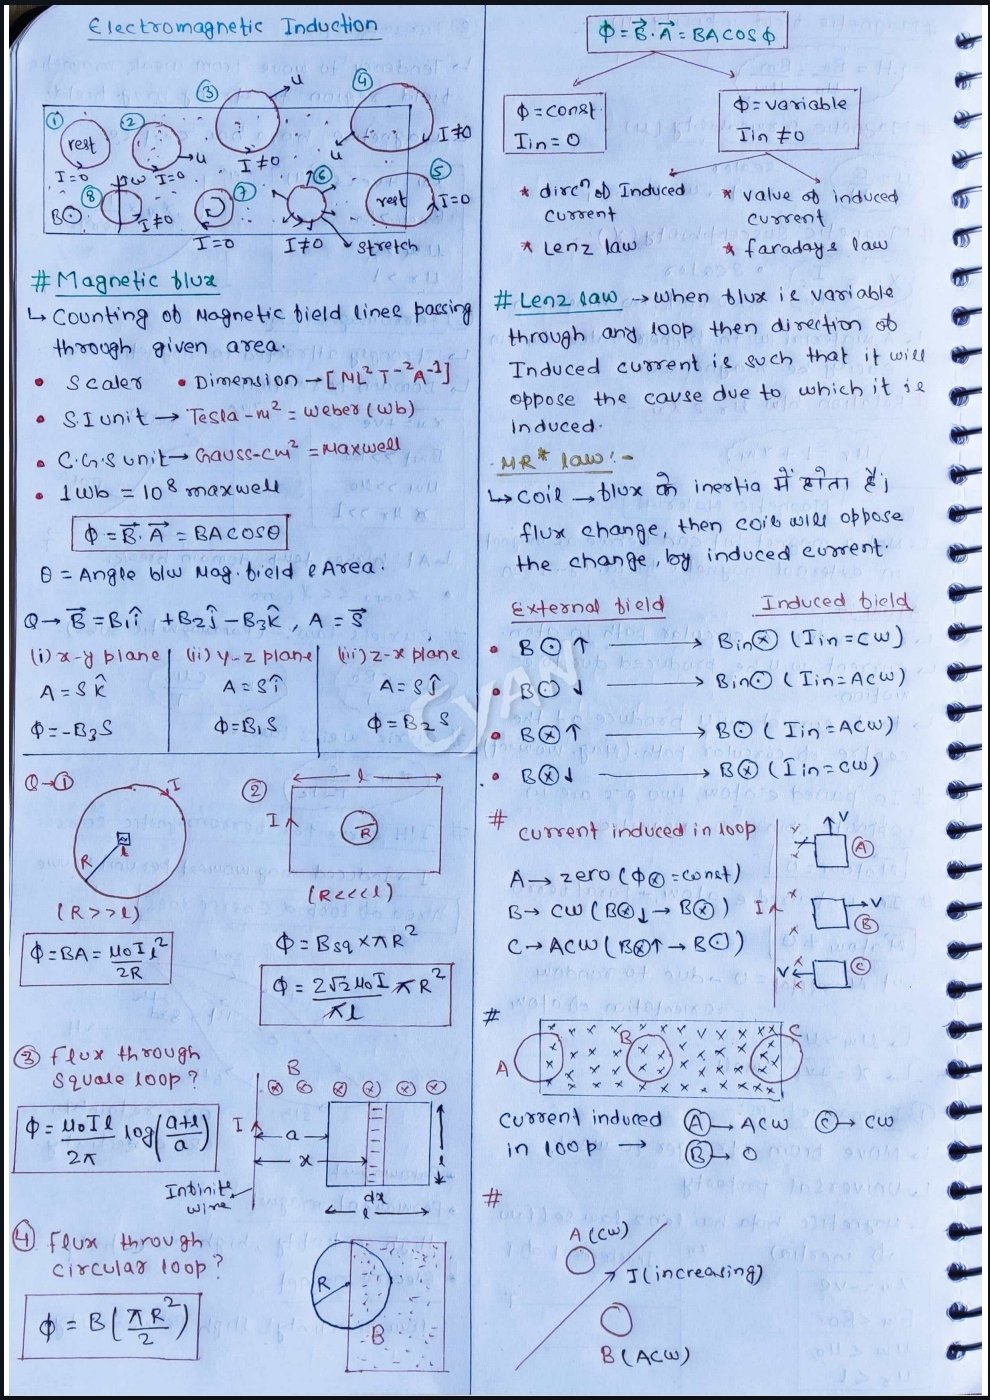 Electromagnetic Induction
① ② ③ ④
rest
u
u
u
I=0
I=0
I≠0
I≠0
⑧ ⑦ ⑥ ⑤
ω
B⊙
rest
I≠0
I=0
I≠0
I=0
stretch
# Magnetic flux
↳ Counting of Magnetic field lines passing
through given area.
• Scaler • Dimension → [ML² T⁻² A⁻¹]
• S.I unit → Tesla-m² = Weber (Wb)
• C.G.S unit → Gauss-cm² = Maxwell
• 1 wb = 10⁸ maxwell
ϕ = B⃗. A⃗ = BA COSθ
θ = Angle b/w Mag. field & Area.
Q → B⃗ = B₁î + B₂ĵ - B₃k̂, A = S⃗
(i) x-y plane | (ii) y-z plane | (iii) z-x plane
A = S k̂ | A = S î | A = S ĵ
ϕ = -B₃S | ϕ = B₁S | ϕ = B₂S
Q → ①
I
R
l
(R>>l)
ϕ = BA = μ₀I l² / 2R
②
l
I
R
(R<<<l)
ϕ = Bsq × πR²
ϕ = 2√2 μ₀I / πl πR²
③ Flux through
square loop?
ϕ = μ₀Il / 2π log(a+l / a)
B
⊗ ⊗ ⊗ ⊗ ⊗ ⊗
I
a
x
l
dx
l
Infinite
wire
④ Flux through
circular loop?
ϕ = B(πR² / 2)
R
B
ϕ = B⃗. A⃗ = BA COSϕ
ϕ = const
Iin = 0
ϕ = variable
Iin ≠ 0
* dircⁿ of Induced
current
* Lenz law
* value of induced
current
* faradays law
# Lenz law → when flux is variable
through any loop then direction of
Induced current is such that it will
oppose the cause due to which it is
induced.
MR* law:-
↳ Coil → flux के inertia में होता है।
flux change, then coil will oppose
the change, by induced current.
External field Induced field
• B⊙↑ → Bin⊗ (Iin = CW)
• B⊙↓ → Bin⊙ (Iin = ACW)
• B⊗↑ → B⊙ (Iin = ACW)
• B⊗↓ → B⊗ (Iin = CW)
# current induced in loop
A → zero (ϕ⊗ = const)
B → CW (B⊗↓ → B⊗)
C → ACW (B⊗↑ → B⊙)
V
A
I
V
B
V
C
CYAN
#
A
B
C
Current induced Ⓐ → ACW Ⓒ → CW
in loop → Ⓑ → 0
#
A (CW)
I (increasing)
B (ACW)